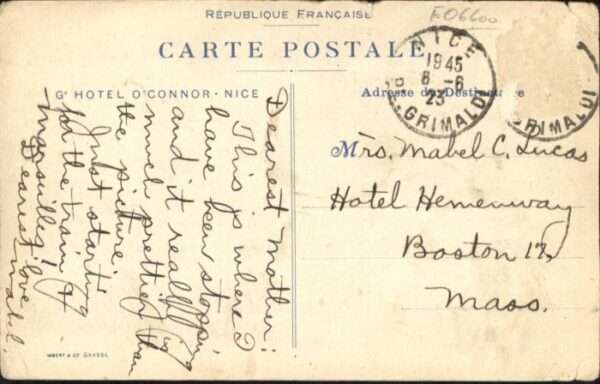 RÉPUBLIQUE FRANÇAISE
F06600
CARTE POSTALE
Gᵈ HOTEL O'CONNOR · NICE
Adresse du Destinataire
NICE
1945
6 -6
23
GRIMALDI
GRIMALDI
Dearest Mother:
This is where I
have been stopping
and it really is
much prettier than
the picture.
Just starting
for the train to
Marseilles!
Dearest love
Mabel.
Mrs. Mabel C. Lucas
Hotel Hemenway
Boston 17,
Mass.